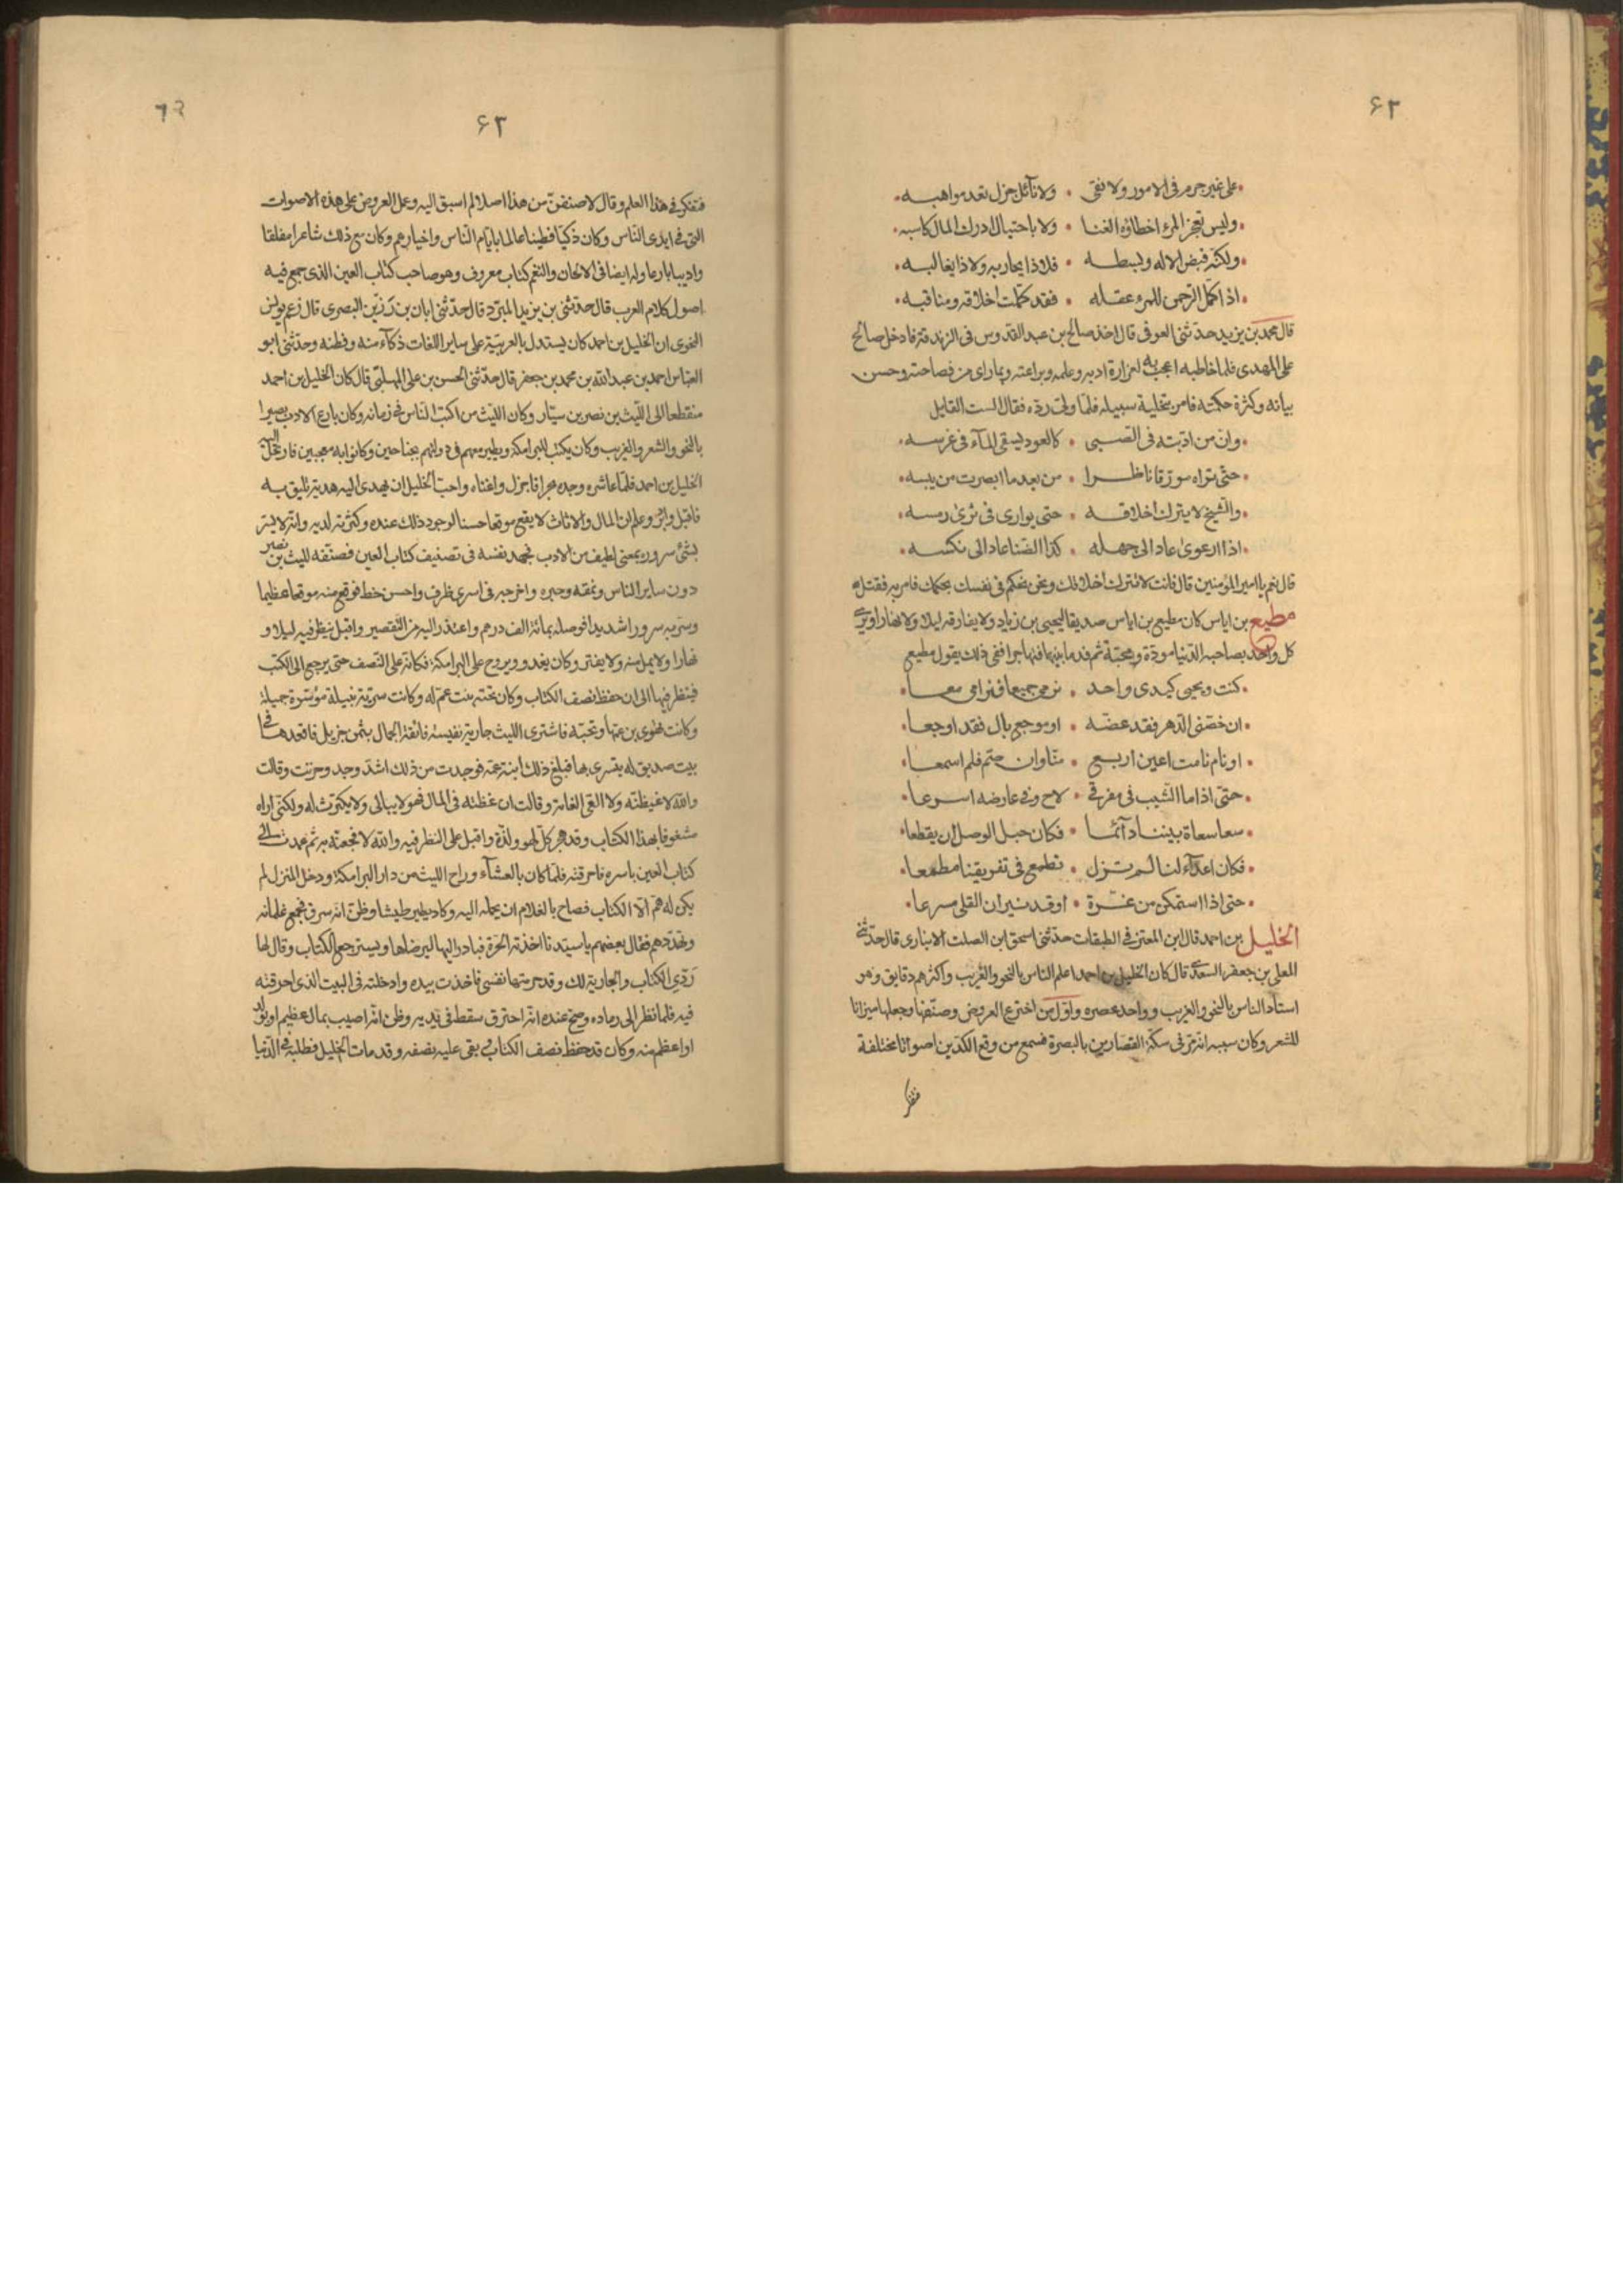 ۶۲
على غير جرم فى الامور ولا تقى • ولا نائل جزل تعد مواهبه
وليس بعجز المرء اخطاؤه الغنا • ولا باحتيال ادرك المال كاسبه
ولكنه قبض الاله وبسطه • فلا ذا يجاربه ولا ذا يغالبه
اذا كمل الرحمن للمرء عقله • فقد كملت اخلاقه ومناقبه
قال محمد بن يزيد حدثنى العوفى قال اخذ صالح بن عبد القدوس فى الزندقة فادخل صالح
على المهدى فلما خاطبه اعجب به لغزارة ادبه وعلمه وبراعته وبما راى من فصاحته وحسن
بيانه وكثرة حكمته فامر بتخلية سبيله فلما ولى رده فقال الست القايل
وان من ادبته فى الصبى • كالعود يسقى المآء فى غرسه
حتى تراه مورقا ناظرا • من بعد ما ابصرت من يبسه
والشيخ لا يترك اخلاقه • حتى يوارى فى ثرى رمسه
اذا ارعوى عاد الى جهله • كذا الضنا عاد الى نكسه
قال نعم يا امير المؤمنين قال فانت لا تترك اخلاقك ونحن نحكم فى نفسك بحكمك فامر به فقتل
مطيع بن اياس كان مطيع بن اياس صديقا ليحيى بن زياد ولا يفارقه ليلا ولا نهارا ويرى
كل واحد بصاحبه الدنيا مودة ومحبة ثم فسد ما بينهما فتهاجرا ففى ذلك يقول مطيع
كنت ويحيى كيدى واحد • نرمى جميعا ونرامى معا
ان خصنى الدهر فقد عضه • او موجع بال فقد اوجعا
او نام نامت اعين اربع • منا وان
حتى اذا ما الشيب فى مفرقى • لاح وفى عارضه اسرعا
سعا سعاة بيننا دآئما • فكان حبل الوصل ان يقطعا
فكان اعدآء لنا لم تزل • تطمع فى تفريقنا مطمعا
حتى اذا استمكن من عثرة • اوقد نيران القلى مسرعا
الخليل بن احمد قال ابن المعتز فى الطبقات حدثنى اسحق ابن الصلت الانبارى قال حدثنى
المعلى بن جعفر السعدى قال كان الخليل بن احمد اعلم الناس بالنحو والغريب واكثرهم دقايق وهو
استاد الناس بالنحو والغريب وواحد عصره واول من اخترع العروض وصنفها وجعلها ميزانا
للشعر وكان سببه انه مر فى سكة القصارين بالبصرة فسمع من وقع الكدين اصواتا مختلفة
۶۳
۶۲
فتفكر فى هذا العلم وقال لاصنفن من هذا اصلا لم اسبق اليه وعمل العروض على هذه الاصوات
التى فى ايدى الناس وكان ذكيا فطينا عالما بايام الناس واخبارهم وكان مع ذلك شاعرا مفلقا
واديبا بارعا وله ايضا فى الالحان والنغم كتاب معروف وهو صاحب كتاب العين الذى جمع فيه
اصول كلام العرب قال حدثنى بن يزيد المبرد قال حدثنى ابان بن رزين البصرى قال زعم يونس
النحوى ان الخليل بن احمد كان يستدل بالعربية على ساير اللغات ذكآء منه وفطنه وحدثنى ابو
العباس احمد بن عبد الله بن محمد بن جعفر قال حدثنى الحسن بن على المهلبى قال كان الخليل بن احمد
منقطعا الى الليث بن نصر بن سيار وكان الليث من اكتب الناس فى زمانه وكان بارع الادب بصيرا
بالنحو والشعر والغريب وكان يكتب للبرامكة ويطير معهم فى دولتهم بجناحين وكانوا به معجبين فارتحل اليه
الخليل بن احمد فلما عاشره وجده بحرا فاجزل واغناه واحب الخليل ان يهدى اليه هدية تليق به
فاقبل وادبر وعلم ان المال والاثاث لا يقع موقعا حسنا لوجود ذلك عنده وكثرته لديه وانه لا يسر
بشئ سروره بمعنى لطيف من الادب فجهد نفسه فى تصنيف كتاب العين فصنفه لليث بن نصر
دون ساير الناس ونمقه وحبره واخرجه فى اسرى ظرف واحسن خط فوقع منه موقعا عظيما
وسر به سرورا شديدا فوصله بمائة الف درهم واعتذر اليه من التقصير واقبل ينظر فيه ليلا و
نهارا ولا يمل منه ولا يفتر وكان يغدو ويروح على البرامكة فكانه على النصف حتى يرجع الى الكتب
فينظر فيها الى ان حفظ نصف الكتاب وكان تحته بنت عم له وكانت سرية نبيلة موسرة جميلة
وكانت تهوى بن عمها وتحبه فاشترى الليث جارية نفيسة فائقة الجمال بثمن جزيل فاقعدها فى
بيت صديق له يتسرى بها فبلغ ذلك ابنة عمه فوجدت من ذلك اشد وجد وحزنت وقالت
والله لاغيظنه ولا القى الغاية وقالت ان غظته فى المال فهو لا يبالى ولا يكترث له ولكنى اراه
مشغوفا بهذا الكتاب وقد هجر كل لهو ولذة واقبل على النظر فيه والله لا فجعته به ثم عمدت الى
كتاب العين باسره فاحرقته فلما كان بالعشآء وراح الليث من دار البرامكة ودخل المنزل لم
يكن له هم الا الكتاب فصاح بالغلام ان يحمله اليه وكاد يطير طيشا وظن انه سرق فجمع غلمانه
وتهددهم فقال بعضهم يا سيدنا اخذته الحرة فبادر اليها ليرضاها ويسترجع الكتاب وقال لها
ردى الكتاب والجارية لك وقد حرمتها نفسى فاخذت بيده وادخلته فى البيت الذى احرقته
فيه فلما نظر الى رماده وصح عنده انه احترق سقط فى يديه وظن انه اصيب بمال عظيم او بولد
او اعظم منه وكان قد حفظ نصف الكتاب فى بقى عليه نصفه وقد مات الخليل فطلبه فى الدنيا